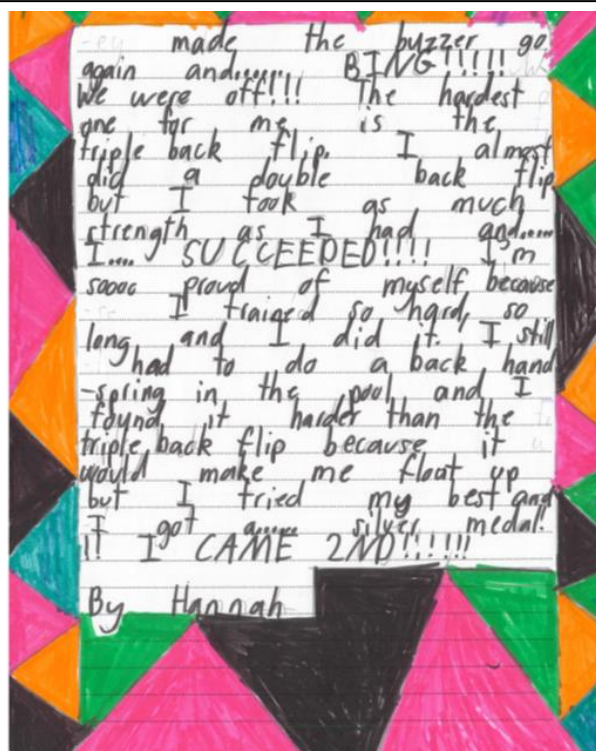 made the buzzer go
again and....... BING!!!!!
We were off!!! The hardest
one for me is the
triple back flip. I almost
did a double back flip
but I took as much
strength as I had and.....
I.... SUCCEEDED!!!! I'm
soooo proud of myself because
I trained so hard, so
long and I did it. I still
had to do a back hand
-spring in the pool and I
found it harder than the
triple back flip because it
would make me float up
but I tried my best and
I got a...... silver medal!
!! I CAME 2ND!!!!!!
By Hannah